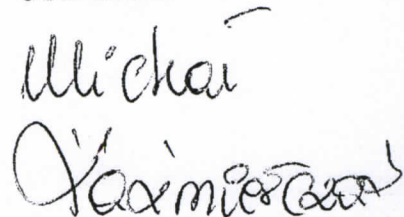 Michał
Kaźmierczak